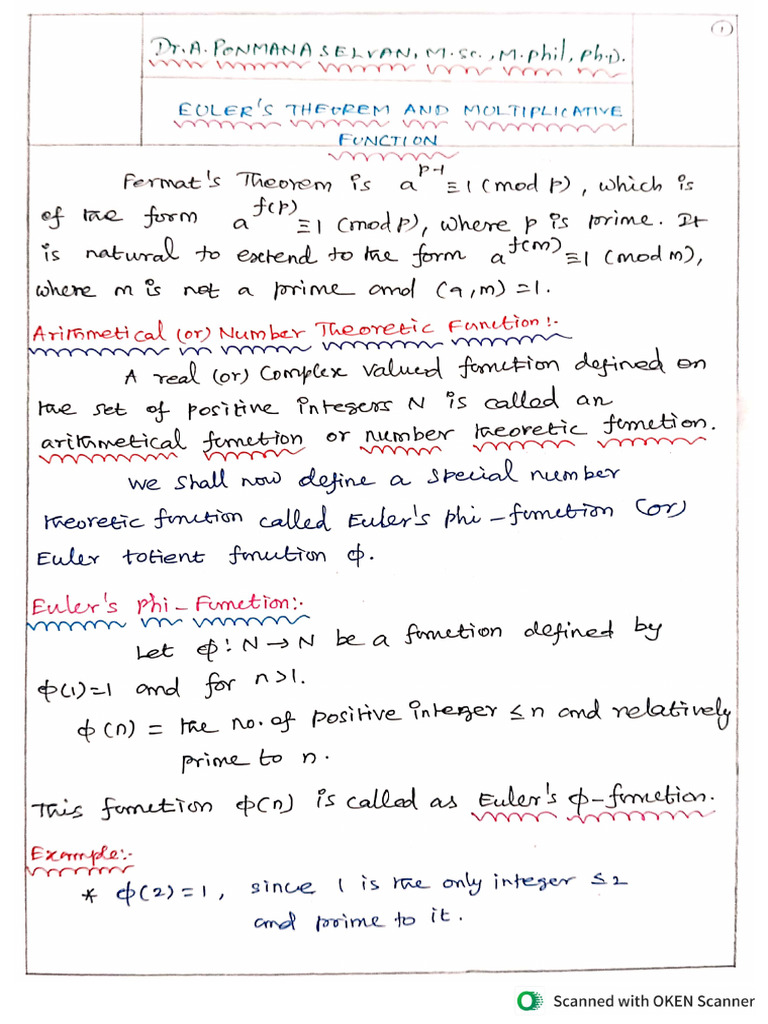 1
Dr. A. PONMANA SELVAN, M.Sc., M.Phil, Ph.D.
EULER'S THEOREM AND MULTIPLICATIVE
FUNCTION
Fermat's Theorem is a^{p-1} ≡ 1 (mod p), which is
of the form a^{f(p)} ≡ 1 (mod p), where p is prime. It
is natural to extend to the form a^{f(m)} ≡ 1 (mod m),
where m is not a prime and (a, m) = 1.
Arithmetical (or) Number Theoretic Function:-
A real (or) Complex valued function defined on
the set of positive integers N is called an
arithmetical function or number theoretic function.
We shall now define a special number
theoretic function called Euler's phi-function (or)
Euler totient function φ.
Euler's Phi-Function:-
Let φ : N → N be a function defined by
φ(1) = 1 and for n > 1.
φ(n) = the no. of positive integer ≤ n and relatively
prime to n.
This function φ(n) is called as Euler's φ-function.
Example:-
* φ(2) = 1, since 1 is the only integer ≤ 2
and prime to it.
Scanned with OKEN Scanner